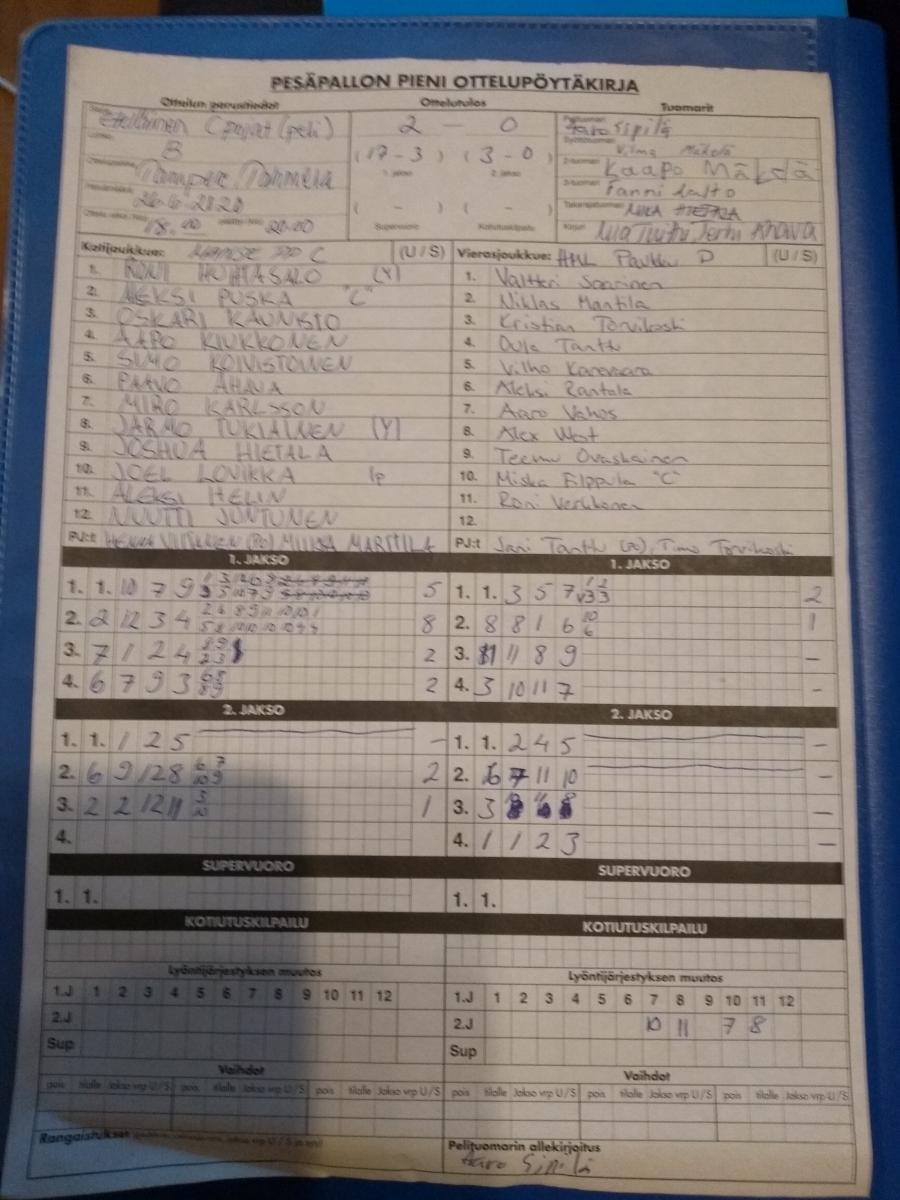 PESÄPALLON PIENI OTTELUPÖYTÄKIRJA
Ottelun perustiedot Ottelutulos Tuomarit
Eteläinen C pojat (peli) 2 - 0 Aaro Sipilä
B (17-3) (3-0) Vilma Mäkelä
1. jakso 2. jakso Kaapo Mäkelä
Tampere, Tammela Fanni Aalto
( - ) ( - )
18.00 20.00 Supervuoro Kotiutuskilpailu
Kotijoukkue: MANSE PP C (U/S) Vierasjoukkue: HML Paukku D (U/S)
1. RONI HUHTASALO (Y) 1. Valtteri Saarinen
2. ALEKSI PUSKA "C" 2. Niklas Mantila
3. OSKARI KAUNISTO 3. Kristian Torvikoski
4. AAPO KIUKKONEN 4. Oula Tanttu
5. SIMO KOIVISTOINEN 5. Vilho Karevaara
6. PAAVO AHAVA 6. Aleksi Rantala
7. MIRO KARLSSON 7. Aaro Vahos
8. JARMO TUKIAINEN (Y) 8. Alex West
9. JOSHUA HIETALA 9. Teemu Ovaskainen
10. JOEL LOVIKKA lp 10. Miska Filppula "C"
11. ALEKSI HELIN 11. Roni Verkkonen
12. NUUTTI JUNTUNEN 12.
PJ:t HENNA (PJ) MIIKA MARTTILA PJ:t Jani Tanttu (PJ), Timo Torvikoski
1. JAKSO 1. JAKSO
1. 1. 10 7 9 5 1. 1. 3 5 7 2
2. 2 12 3 4 8 2. 8 8 1 6 10 6 1
3. 7 1 2 4 2 3. 11 8 9 -
4. 6 7 9 3 68 89 2 4. 3 10 11 7 -
2. JAKSO 2. JAKSO
1. 1. 1 2 5 - 1. 1. 2 4 5 -
2. 6 9 12 8 6 7 10 9 2 2. 6 7 11 10 -
3. 2 2 12 11 3 10 1 3. 3 -
4. 4. 1 1 2 3 -
SUPERVUORO SUPERVUORO
1. 1. 1. 1.
KOTIUTUSKILPAILU KOTIUTUSKILPAILU
Lyöntijärjestyksen muutos Lyöntijärjestyksen muutos
1.J 1 2 3 4 5 6 7 8 9 10 11 12 1.J 1 2 3 4 5 6 7 8 9 10 11 12
2.J 2.J 10 11 7 8
Sup Sup
Vaihdot Vaihdot
pois tilalle Jakso vrp U/S pois tilalle Jakso vrp U/S pois tilalle Jakso vrp U/S pois tilalle Jakso vrp U/S pois tilalle Jakso vrp U/S pois tilalle Jakso vrp U/S
Rangaistukset Pelituomarin allekirjoitus
Aaro Sipilä